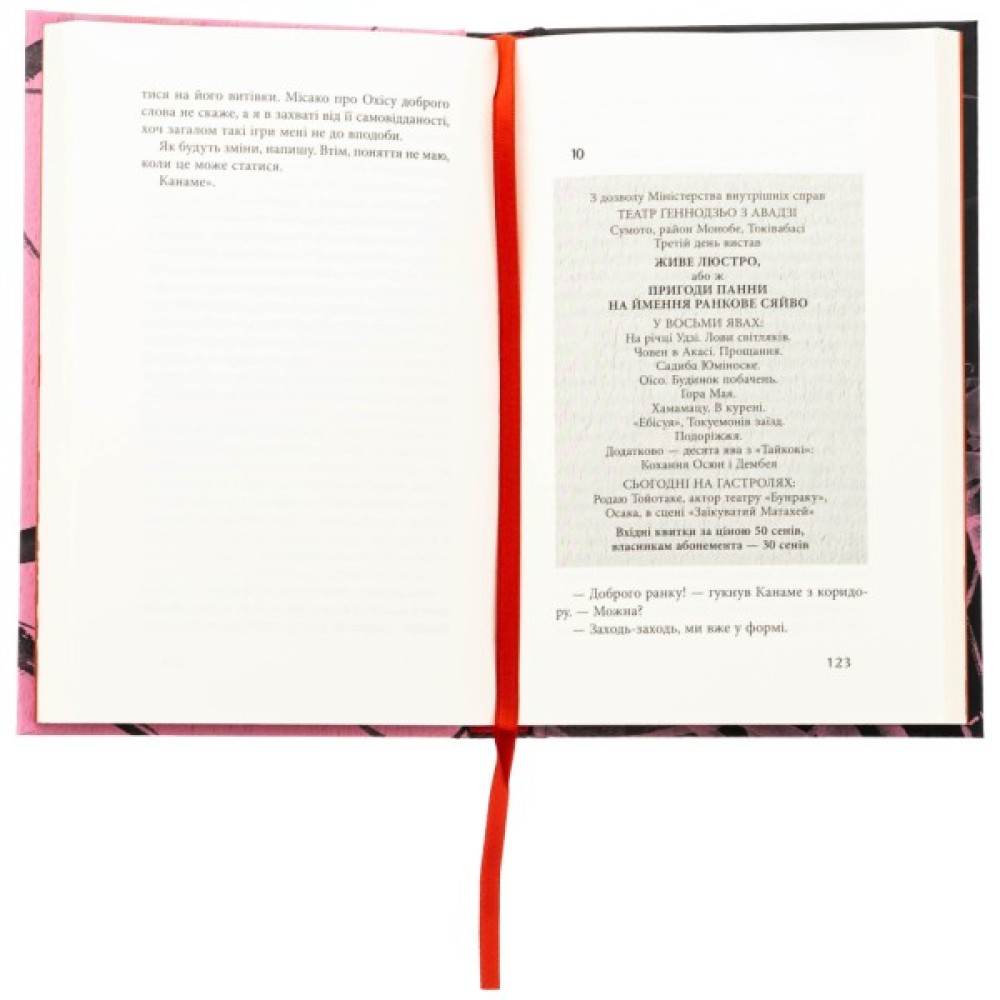 тися на його витівки. Місако про Охісу доброго
слова не скаже, а я в захваті від її самовідданості,
хоч загалом такі ігри мені не до вподоби.
Як будуть зміни, напишу. Втім, поняття не маю,
коли це може статися.
Канаме».
10
З дозволу Міністерства внутрішніх справ
ТЕАТР ҐЕННОДЗЬО З АВАДЗІ
Сумото, район Монобе, Токівабасі
Третій день вистав
ЖИВЕ ЛЮСТРО,
або ж
ПРИГОДИ ПАННИ
НА ЙМЕННЯ РАНКОВЕ СЯЙВО
У ВОСЬМИ ЯВАХ:
На річці Удзі. Лови світляків.
Човен в Акасі. Прощання.
Садиба Юміноске.
Оїсо. Будинок побачень.
Гора Мая.
Хамамацу. В курені.
«Ебісуя», Токуемонів заїзд.
Подоріжжя.
Додатково — десята ява з «Тайкокі»:
Кохання Осюн і Дембея
СЬОГОДНІ НА ГАСТРОЛЯХ:
Родаю Тойотаке, актор театру «Бунраку»,
Осака, в сцені «Заїкуватий Матахей»
Вхідні квитки за ціною 50 сенів,
власникам абонемента — 30 сенів
— Доброго ранку! — гукнув Канаме з коридо-
ру. — Можна?
— Заходь-заходь, ми вже у формі.
123